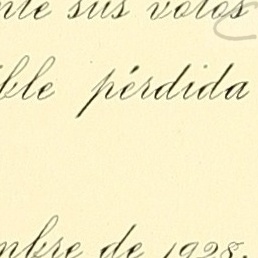 nte sus votos
ble pérdida
mbre de 1928.